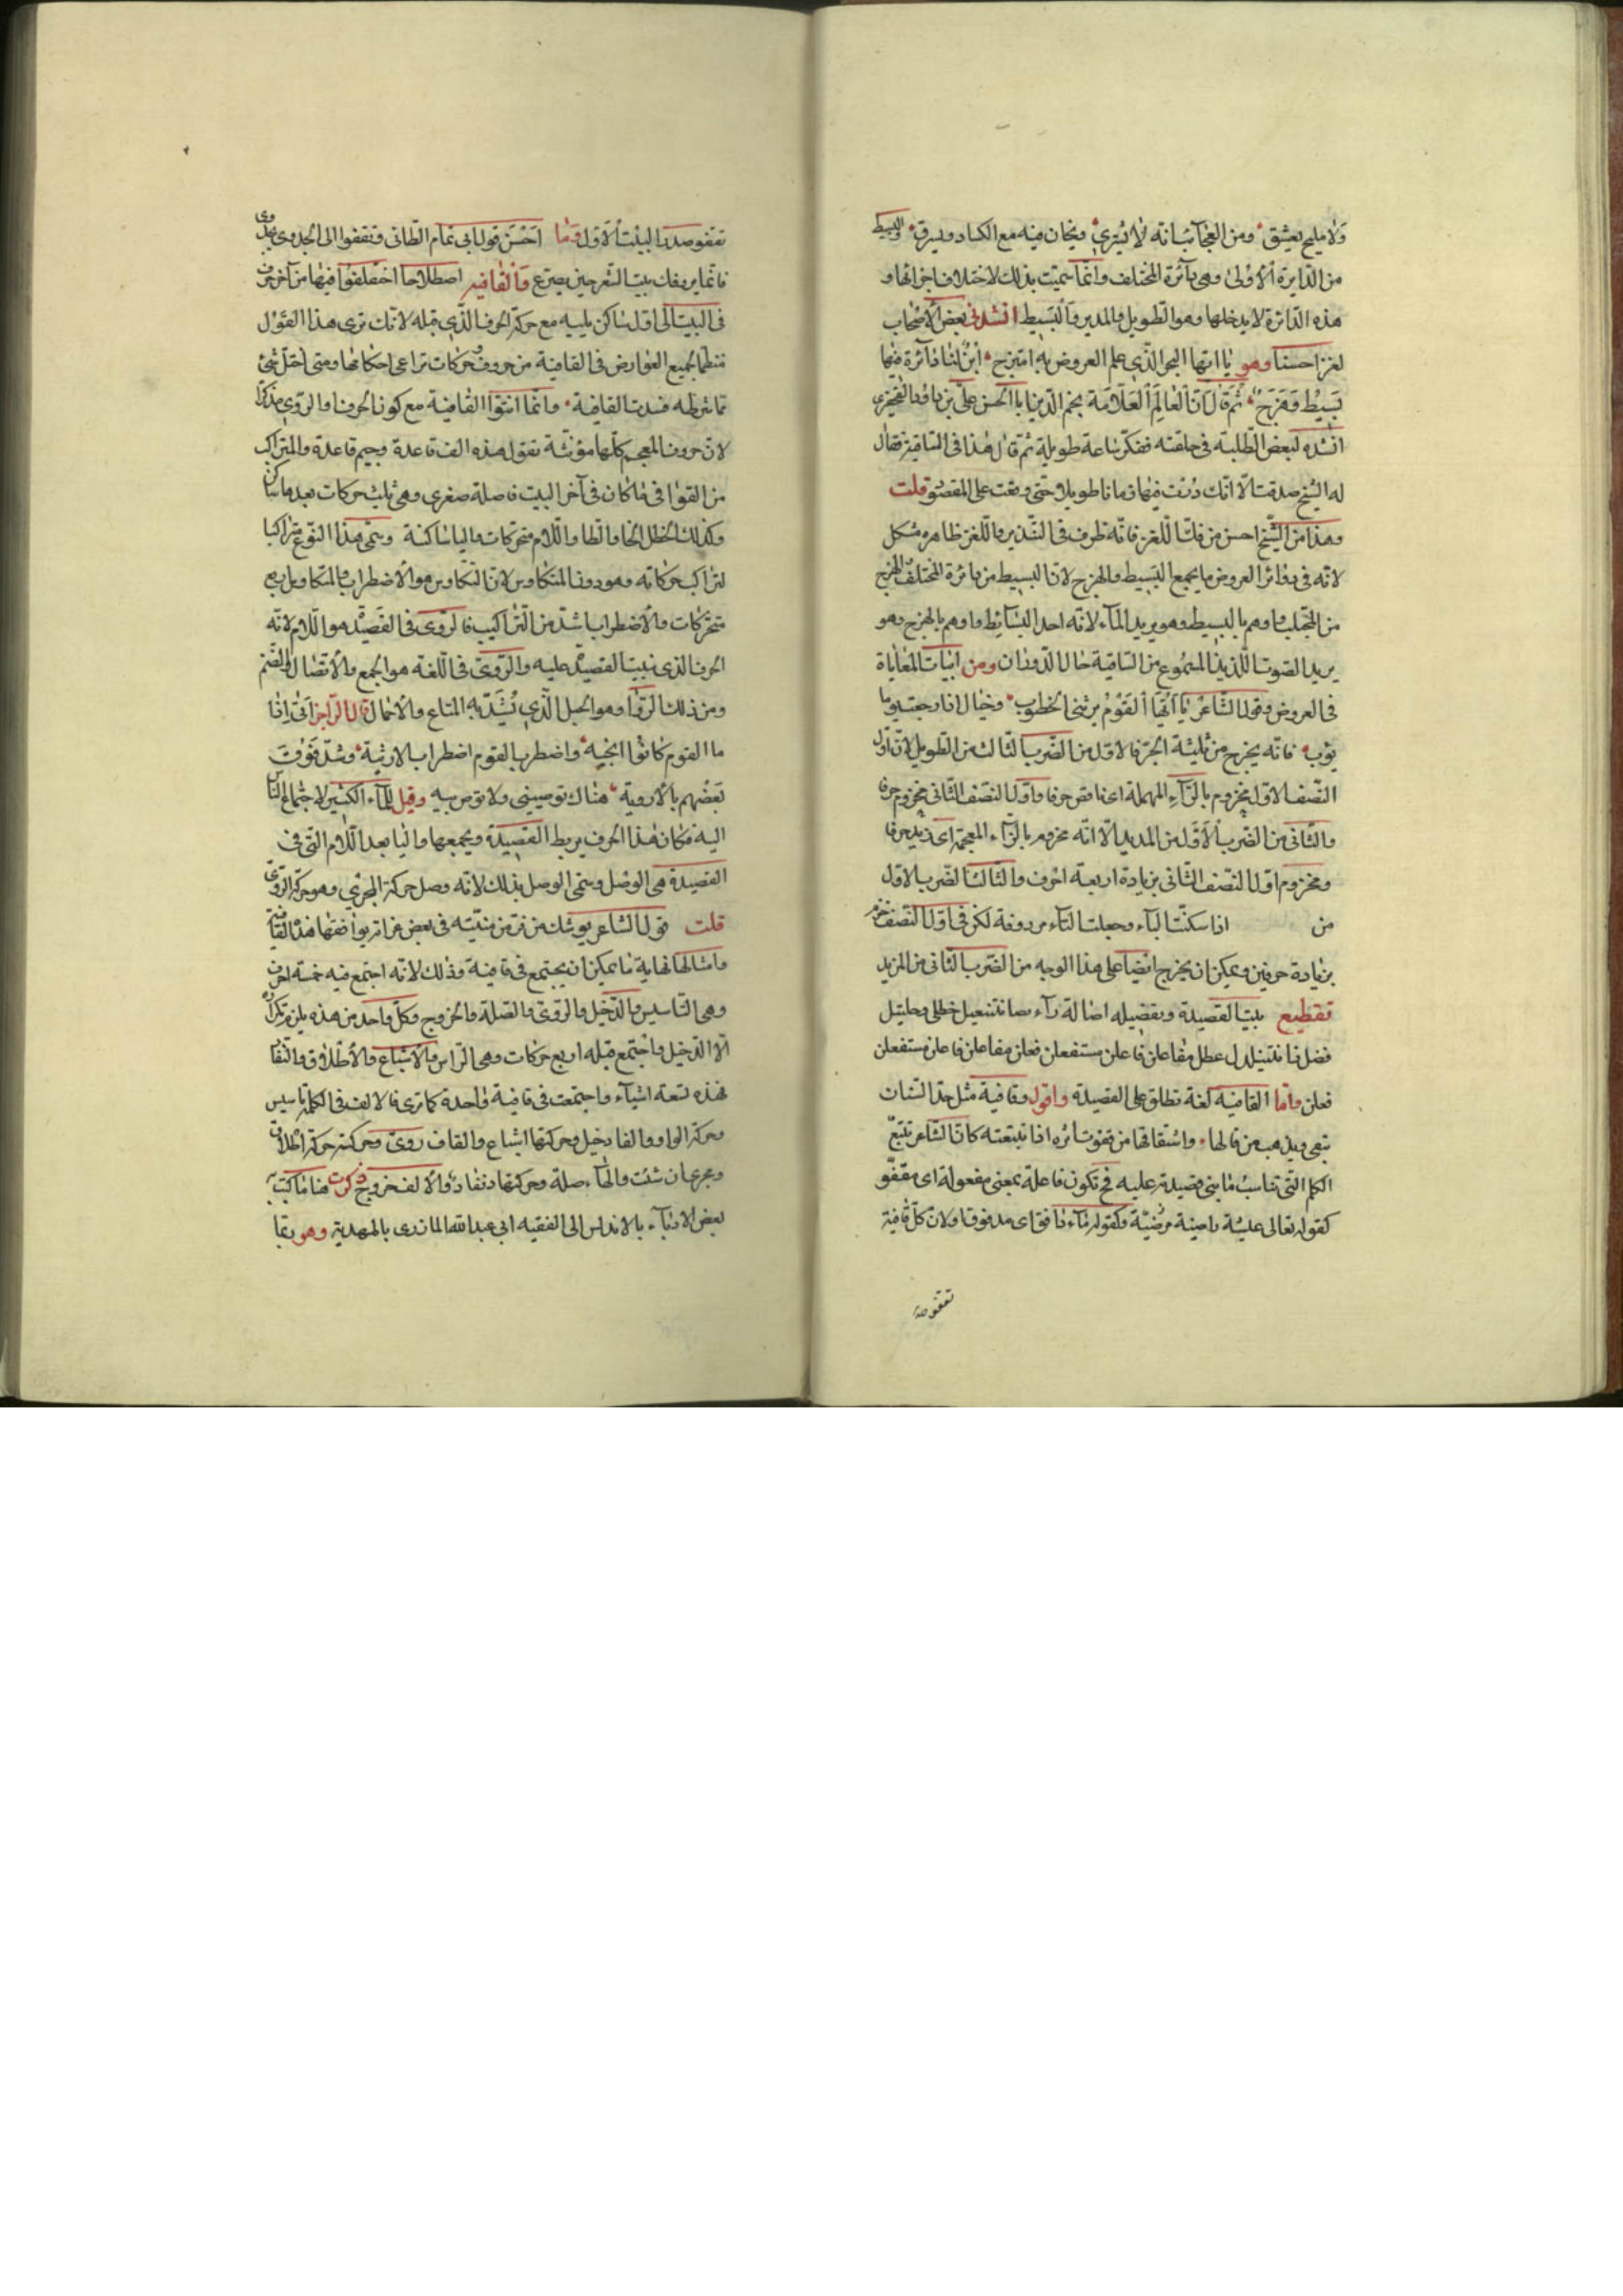 ولا مليح يعشق ومن العجائب انه لا يشترى ويخان فيه مع الكساد ويسرق والبسيط
من الدايرة الأولى وهي دآئرة المختلف وانما سميت بذلك لاختلاف اجزائها و
هذه الدائرة لا يدخلها وهو الطويل والمديد والبسيط انشدني بعض الأصحاب
لغزا حسنا وهو يا ايها الحبر الذي علم العروض به امتزج ابن لنا دآئرة فيها
بسيط وهزج ثم قال ان العالم العلامة نجم الدين ابا الحسن علي بن داود القحفزى
انشده لبعض الطلبة في حلقته ففكر ساعة طويلة ثم قال هذا في الساقية فقال
له الشيخ صدقت الا انك درت فيها زمانا طويلا حتى وقعت على المقصود قلت
وهذا من الشيخ احسن من فك اللغز فانه ظرف في التندير واللغز ظاهره مشكل
لانه في دوائر العروض ما يجمع البسيط والهزج لان البسيط من دائرة المختلف والهزج
من المجتلب واوهم بالبسيط وهو يريد المآء لانه احد البسآئط واوهم بالهزج وهو
يريد الصوت اللذيذ المسموع من الساقية حال الدوران ومن ابيات المعاياة
في العروض قول الشاعر يا ايها القوم برثني الخطوب وخيال اذا رجعت يوما
يؤب فانه يخرج من ثلثة ابحر فالاول من الضرب الثالث من الطويل لان اول
النصف الاول مخروم بالرآء المهملة اى ناقص حرفا واول النصف الثاني مخزوم حرفا
والثاني من الضرب الأول من المديد الا انه مخزوم بالزاء المعجمة اى زيد حرفا
ومخزوم اول النصف الثاني بزيادة اربعة احرف والثالث الضرب الاول
من اذا سكنت البآء وجعلت التآء مردوفة لكن في اول النصف مخزم
بزيادة حرفين ويمكن ان يخرج ايضا على هذا الوجه من الضرب الثاني من المزيد
تقطيع بيت القصيدة وتفصيله اصالة رآء صانتنعيل خطلي وحليتل
فضل زانتنيلدل عطل مفاعلن فاعلن مستفعلن فعلن مفاعلن فاعلن مستفعلن
فعلن واما القافية لغة تطلق على القصيدة واقول وقافية مثل حد السنان
تبقى ويذهب من قالها واشتقاقها من قفوت اثره اذا تتبعته كان الشاعر تتبع
الكلم التي تناسب ما بني قصيدته عليه فح تكون فاعلة بمعنى مفعولة اى مقفو
كقوله تعالى عيشة راضية مرضية وكقوله مآء دافق اى مدفوقا ولان كل قافية
تقفو صد
تقفو صدر البيت الاول وما احسن قول ابي تمام الطائي وتقفوا الى الجدوى بجدوى
فانما يروقك بيت الشعر حين يصرع والقافيه اصطلاحا اختلفوا فيها من آخر حرف
في البيت الى اول ساكن يليه مع حركة الحرف الذي قبله لانك ترى هذا القول
منتظما لجميع العوارض في القافية من حروف وحركات تراعى احكامها ومتى اختل شئ
مما شرطه فسدت القافية وانما انثوا القافية مع كون الحرف والروي مذكرا
لان حروف المعجم كلها مؤنثة تقول هذه الف قاعدة وجيم قاعدة والمتراكب
من القوافي ما كان في آخر البيت فاصلة صغرى وهي ثلث حركات بعدها ساكن
وكذلك الخطل الخا والطا واللام متحركات والياساكنة وسمى هذا النوع متراكبا
لتراكب حركاته وهو دون المتكاوس لان التكاوس هو الأضطراب والمتكاوس اربع
متحركات والأضطراب اشد من التراكيب فالروى في القصيدة هو اللام لانه
الحرف الذي نبيت القصيدة عليه والروى في اللغة هو الجمع والأتصال والضم
ومن ذلك الروا وهو الحبل الذي يشد به المتاع والأحمال قال الراجز اني اذا
ما القوم كانوا انجيه واضطرب القوم اضطراب الارشية وشد فوق
بعضهم بالأروية هناك توصيني ولا توص بيه وقيل للمآء الكثير لاجتماع الناس
اليه فكان هذا الحرف يربط القصيدة ويجمعها واليا بعد اللام التي في
القصيدة هي الوصل وسمى الوصل بذلك لانه وصل حركة المجرى وهو حركة الروي
قلت قول الشاعر يوشك من فر من منيته في بعض غراته يوافقها هذه القافية
وامثالها نهاية ما يمكن ان يجتمع في قافية وذلك لانه اجتمع فيه خمسة احرف
وهي التاسيس والدخيل والروى والصلة والخروج وكل واحد من هذه يلزم تكراره
الا الدخيل واجتمع قبله اربع حركات وهي الراس والأشباع والأطلاق والنفا
فهذه تسعة اشيآء واجتمعت في قافية واحدة كما ترى فالالف في الكلمة تاسيس
وحركة الواو والفا دخيل وحركتها اشباع والقاف روى وحركته حركة اطلاق
ومجرى ان شئت والهآء صلة وحركتها نفاد والألف خروج ذكرت هنا ما كتبه
بعض الادبآء بالاندلس الى الفقيه ابي عبد الله المازري بالمهدية وهو ربما